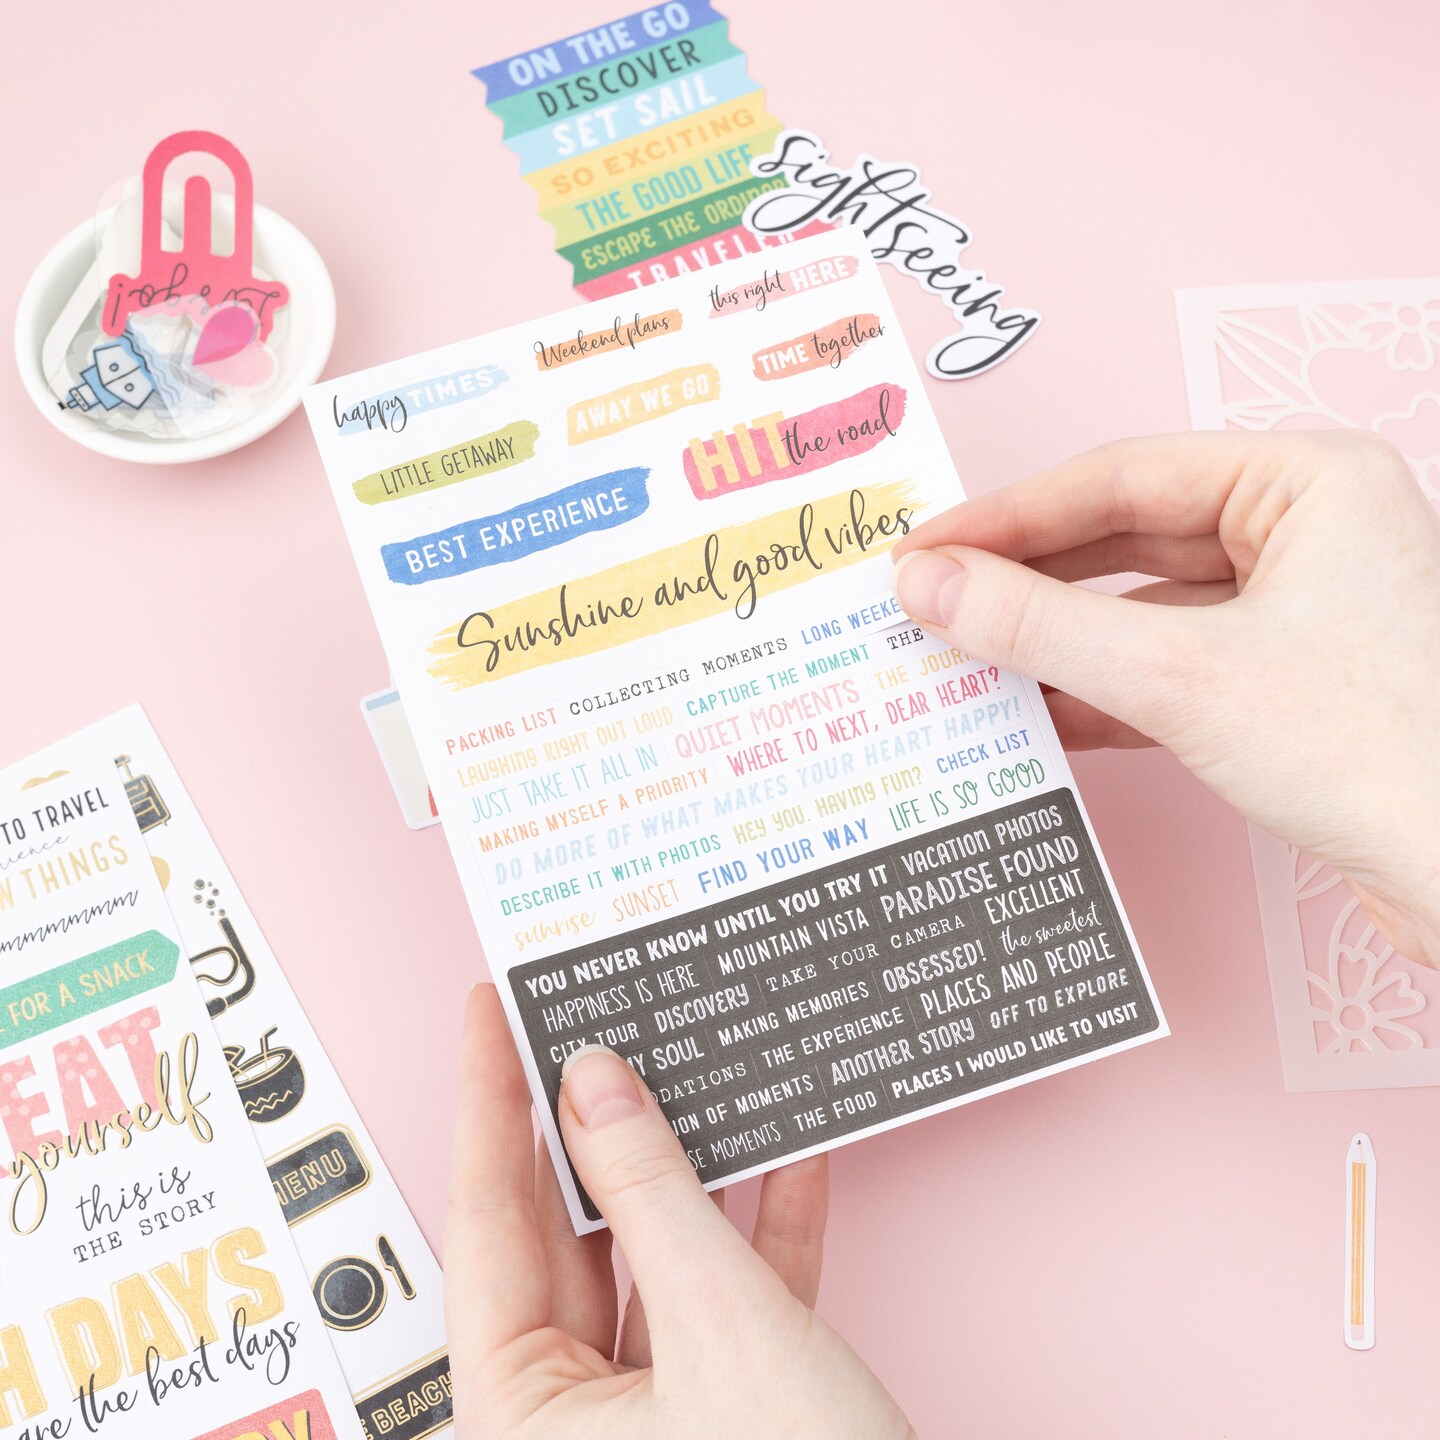 ON THE GO
DISCOVER
SET SAIL
SO EXCITING
THE GOOD LIFE
ESCAPE THE
TRAVELER
sightseeing
Let's go!
this right HERE
Weekend plans
happy TIMES
TIME together
AWAY WE GO
LITTLE GETAWAY
HIT the road
BEST EXPERIENCE
Sunshine and good vibes
PACKING LIST COLLECTING MOMENTS LONG
LAUGHING RIGHT OUT LOUD CAPTURE THE MOMENT THE
JUST TAKE IT ALL IN QUIET MOMENTS THE
MAKING MYSELF A PRIORITY WHERE TO NEXT, DEAR HEART?
DO MORE OF WHAT MAKES YOUR HEART HAPPY!
DESCRIBE IT WITH PHOTOS HEY YOU, HAVING FUN? CHECK LIST
sunrise SUNSET FIND YOUR WAY LIFE IS SO GOOD
YOU NEVER KNOW UNTIL YOU TRY IT VACATION PHOTOS
HAPPINESS IS HERE MOUNTAIN VISTA PARADISE FOUND
CITY TOUR DISCOVERY TAKE YOUR CAMERA EXCELLENT
MY SOUL MAKING MEMORIES OBSESSED! the sweetest
THE EXPERIENCE PLACES AND PEOPLE
OF MOMENTS ANOTHER STORY OFF TO EXPLORE
MOMENTS THE FOOD PLACES I WOULD LIKE TO VISIT
TO TRAVEL
THINGS
FOR A SNACK
yourself
this is
THE STORY
MENU
DAYS
are the best days
BEACH